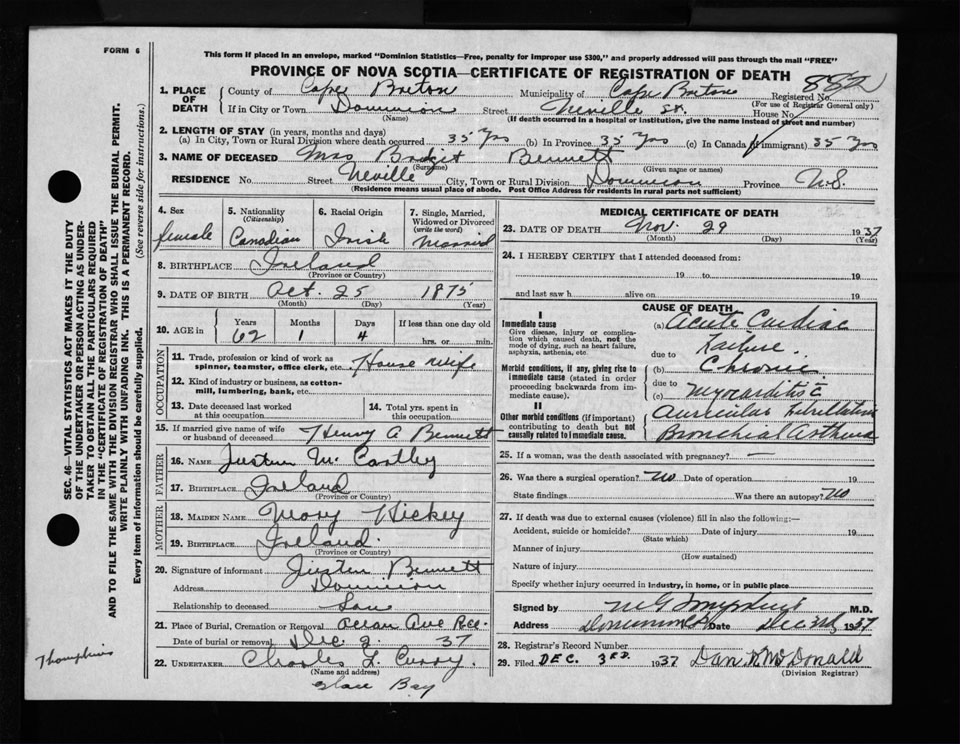 FORM 6
This form if placed in an envelope, marked "Dominion Statistics—Free, penalty for improper use $300," and properly addressed will pass through the mail "FREE"
PROVINCE OF NOVA SCOTIA—CERTIFICATE OF REGISTRATION OF DEATH
882
1. PLACE OF DEATH
County of Cape Breton Municipality of Cape Breton Registered No.
(For use of Registrar General only)
If in City or Town Dominion Street Neville St. House No.
(Name) (If death occurred in a hospital or institution, give the name instead of street and number)
2. LENGTH OF STAY (in years, months and days)
(a) In City, Town or Rural Division where death occurred 35 Yrs (b) In Province 35 Yrs (c) In Canada (if immigrant) 35 Yrs
3. NAME OF DECEASED Mrs Bridgit Bennett
(Surname) (Given name or names)
RESIDENCE No. Street Neville City, Town or Rural Division Dominion Province N.S.
(Residence means usual place of abode. Post Office Address for residents in rural parts not sufficient)
SEC. 46—VITAL STATISTICS ACT MAKES IT THE DUTY
OF THE UNDERTAKER OR PERSON ACTING AS UNDER-
TAKER TO OBTAIN ALL THE PARTICULARS REQUIRED
IN THE "CERTIFICATE OF REGISTRATION OF DEATH"
AND TO FILE THE SAME WITH THE DIVISION REGISTRAR WHO SHALL ISSUE THE BURIAL PERMIT.
WRITE PLAINLY WITH UNFADING INK. THIS IS A PERMANENT RECORD.
Every item of information should be carefully supplied. (See reverse side for instructions.)
4. Sex
female
5. Nationality
(Citizenship)
Canadian
6. Racial Origin
Irish
7. Single, Married, Widowed or Divorced
(write the word)
Married
8. BIRTHPLACE Ireland
(Province or Country)
9. DATE OF BIRTH Oct. 25 1875
(Month) (Day) (Year)
10. AGE in
Years Months Days If less than one day old
62 1 4 hrs. or min.
OCCUPATION
11. Trade, profession or kind of work as
spinner, teamster, office clerk, etc. House wife
12. Kind of industry or business, as cotton-
mill, lumbering, bank, etc.
13. Date deceased last worked
at this occupation
14. Total yrs. spent in
this occupation
15. If married give name of wife
or husband of deceased Henry A Bennett
FATHER
16. NAME Justin McCarthy
17. BIRTHPLACE Ireland
(Province or Country)
MOTHER
18. MAIDEN NAME Mary Hickey
19. BIRTHPLACE Ireland
(Province or Country)
20. Signature of informant Justin Bennett
Address Dominion
Relationship to deceased Son
21. Place of Burial, Cremation or Removal Ocean Ave Res.
Date of burial or removal Dec 2. 37
22. UNDERTAKER Charles L. Curry.
(Name and address)
Glace Bay
Thompkins
MEDICAL CERTIFICATE OF DEATH
23. DATE OF DEATH Nov. 29 1937
(Month) (Day) (Year)
24. I HEREBY CERTIFY that I attended deceased from:
19 to 19
and last saw h alive on 19
CAUSE OF DEATH
I
Immediate cause
Give disease, injury or complica-
tion which caused death, not the
mode of dying, such as heart failure,
asphyxia, asthenia, etc.
Morbid conditions, if any, giving rise to
immediate cause (stated in order
proceeding backwards from im-
mediate cause).
II
Other morbid conditions (if important)
contributing to death but not
causally related to immediate cause.
(a) Acute Cardiac
due to Failure.
(b) Chronic
due to
(c) Myocarditis c̄
Auricular Fibrillation
Bronchial Asthma
25. If a woman, was the death associated with pregnancy? —
26. Was there a surgical operation? No Date of operation 19
State findings Was there an autopsy? No
27. If death was due to external causes (violence) fill in also the following:—
Accident, suicide or homicide? Date of injury 19
(State which)
Manner of injury
(How sustained)
Nature of injury
Specify whether injury occurred in industry, in home, or in public place
Signed by M G Tompkins M.D.
Address Dominion Date Dec 3rd, 1937
28. Registrar's Record Number
29. Filed DEC. 3RD. 1937 Dan McDonald
(Division Registrar)